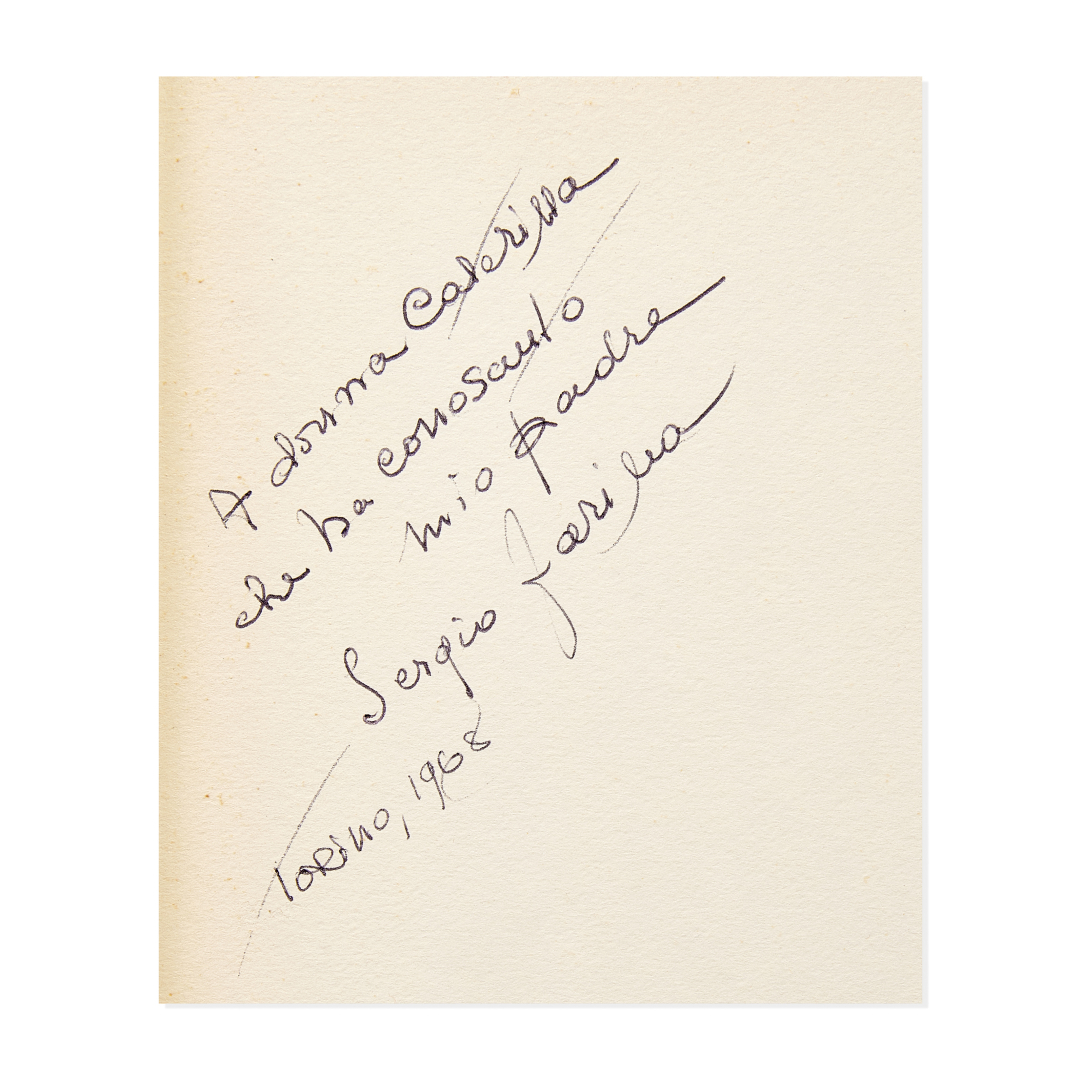 A donna Caterina
che ha conosciuto
mio padre
Sergio Farina
Torino, 1968